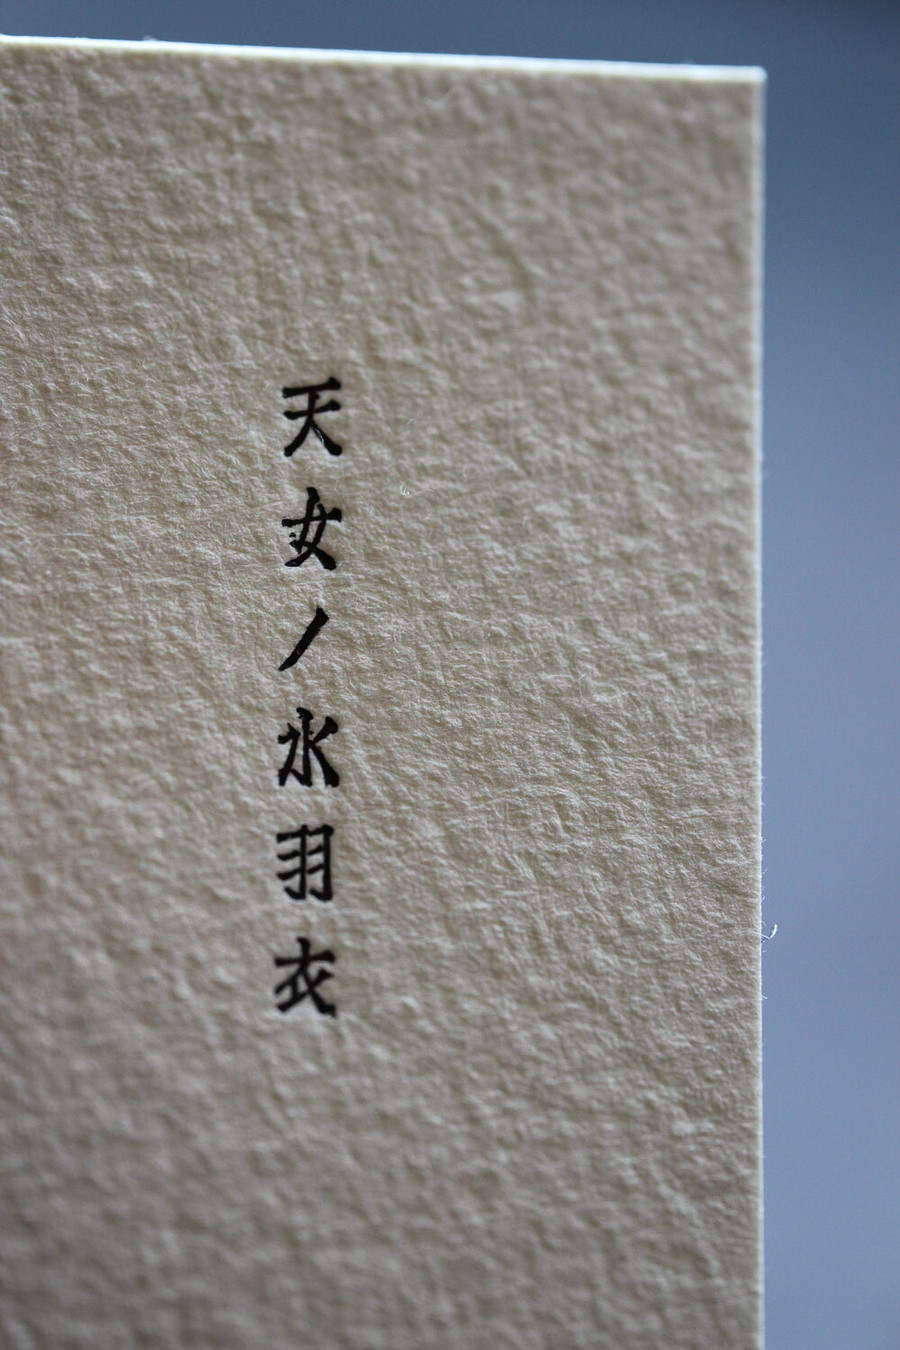 天女ノ水羽衣